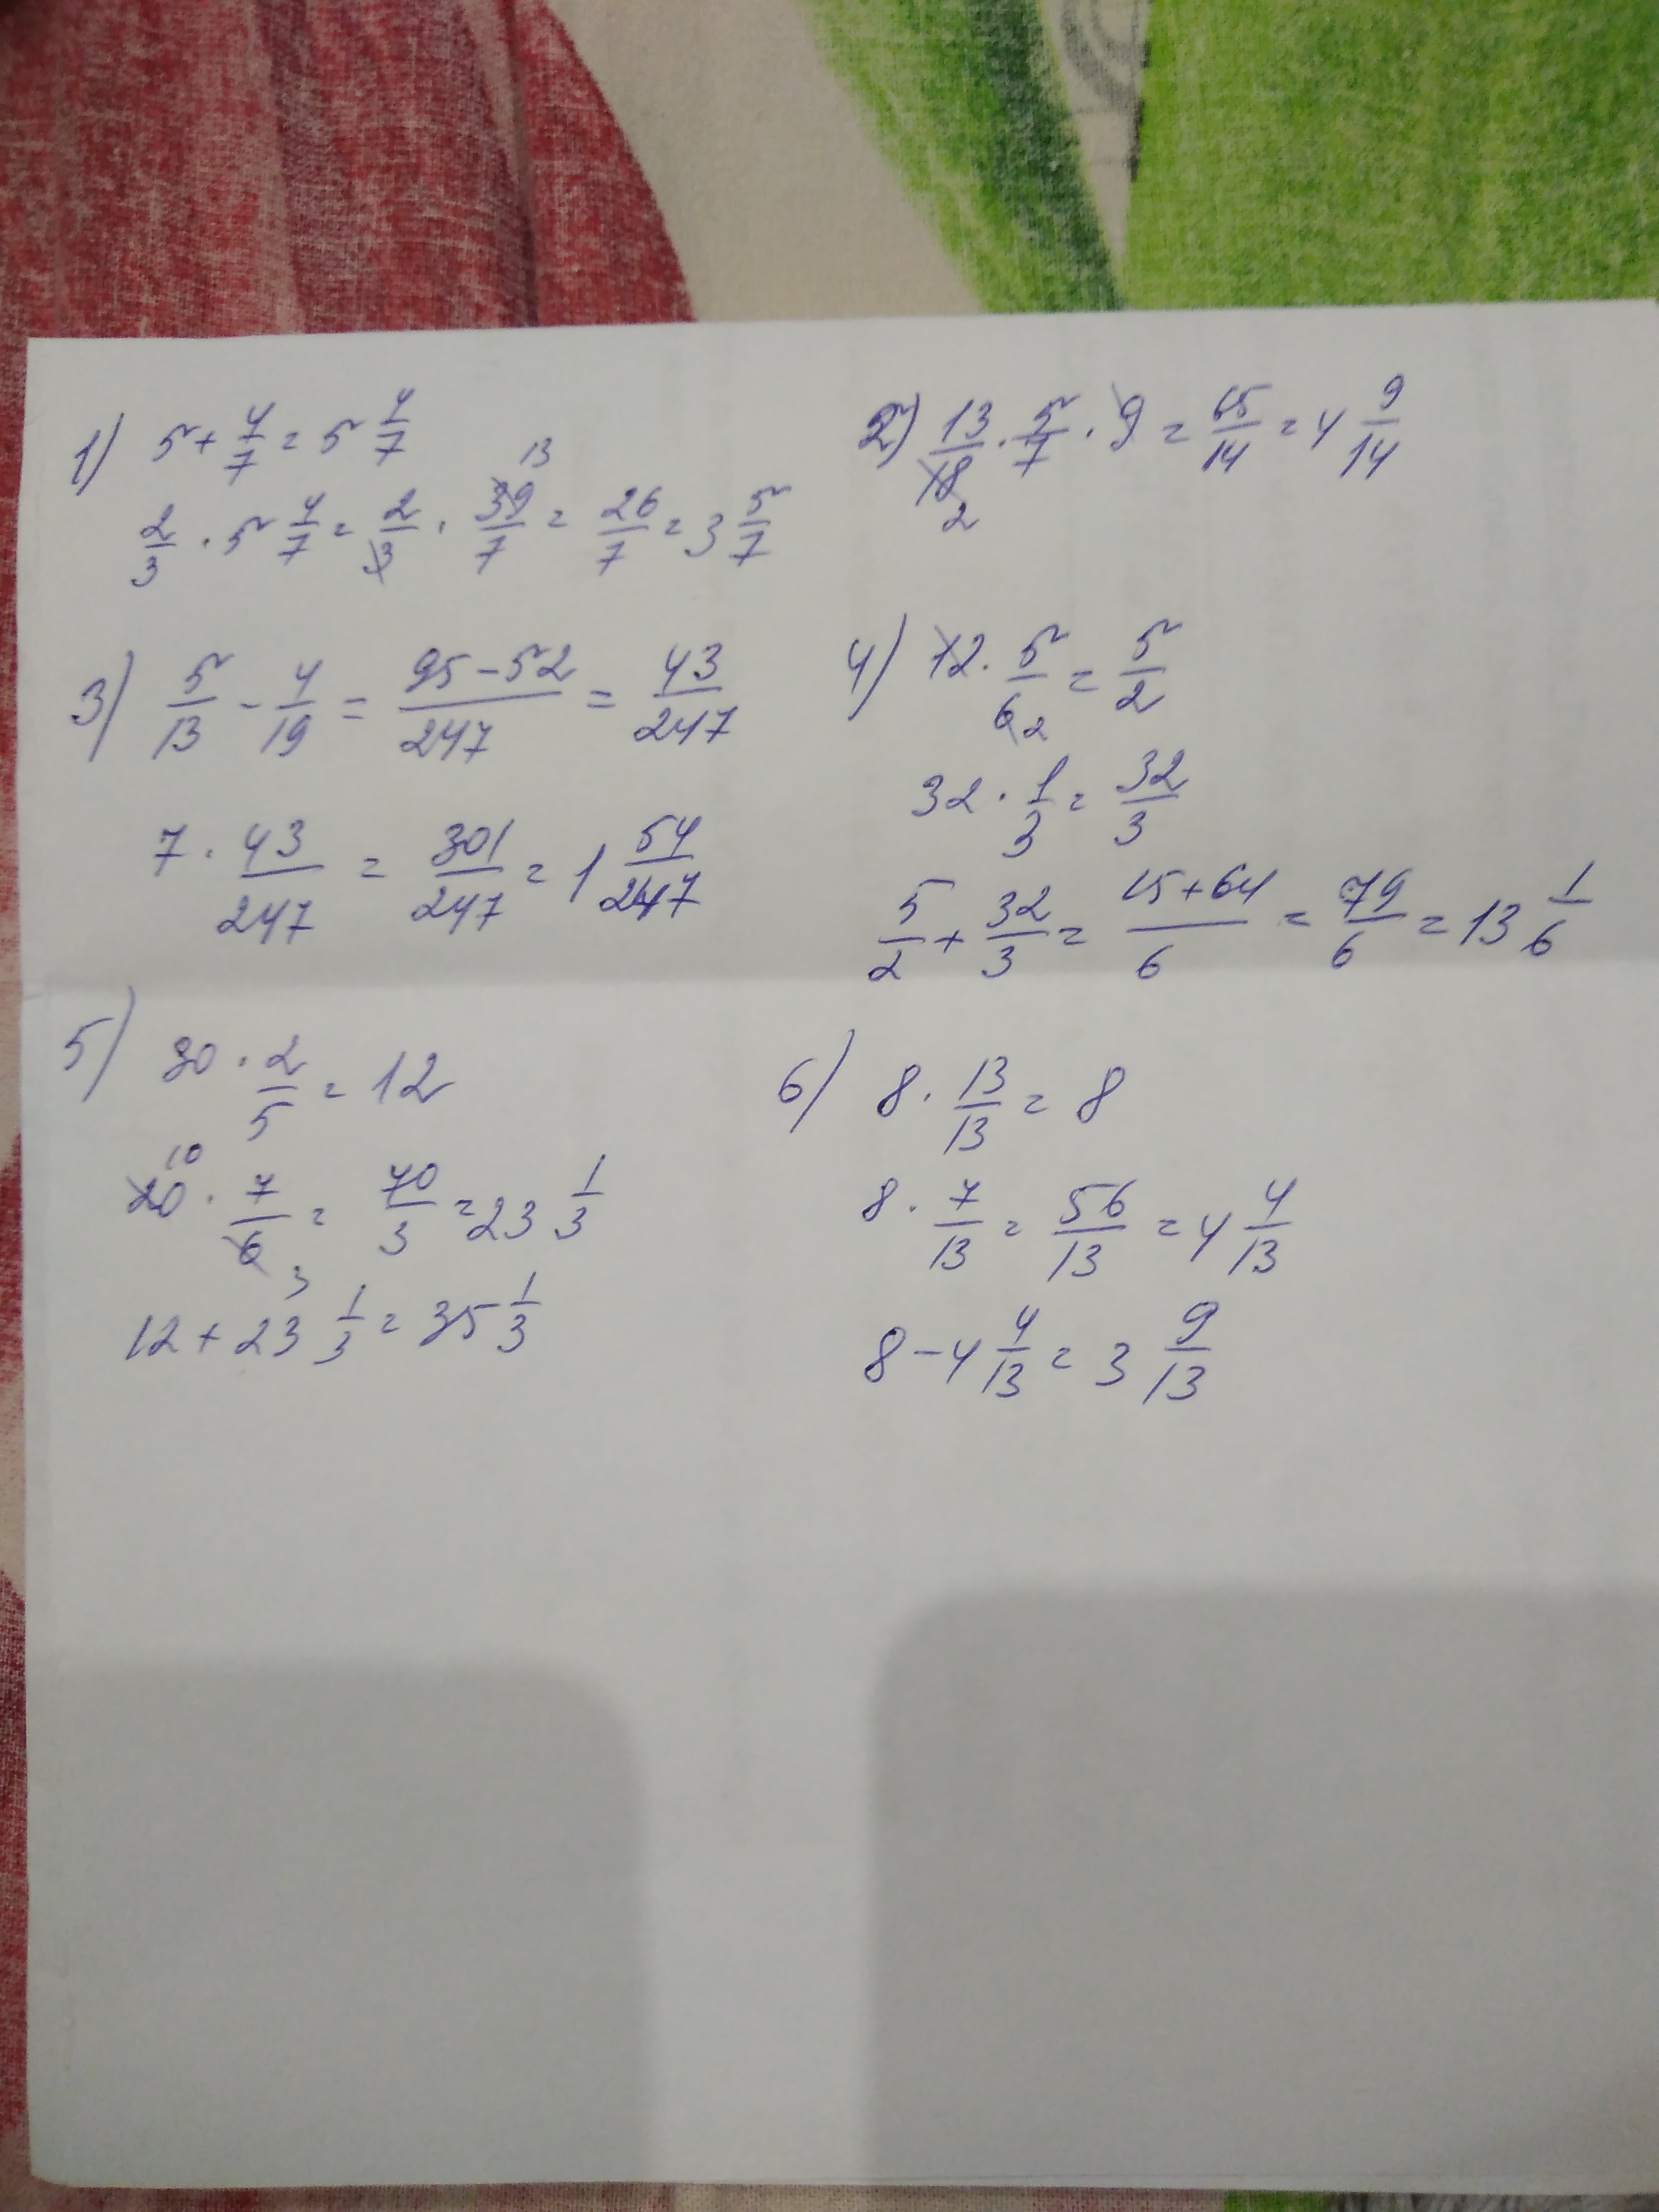 1) 5 + 4/7 = 5 4/7
2/3 · 5 4/7 = 2/3 · 39/7 = 26/7 = 3 5/7
13
2) 13/18 · 5/7 · 9 = 65/14 = 4 9/14
2
3) 5/13 - 4/19 = (95 - 52)/247 = 43/247
7 · 43/247 = 301/247 = 1 54/247
4) 12 · 5/6 = 5/2
2
32 · 1/3 = 32/3
5/2 + 32/3 = (15 + 64)/6 = 79/6 = 13 1/6
5) 30 · 2/5 = 12
10
20 · 7/6 = 70/3 = 23 1/3
3
12 + 23 1/3 = 35 1/3
6) 8 · 13/13 = 8
8 · 7/13 = 56/13 = 4 4/13
8 - 4 4/13 = 3 9/13